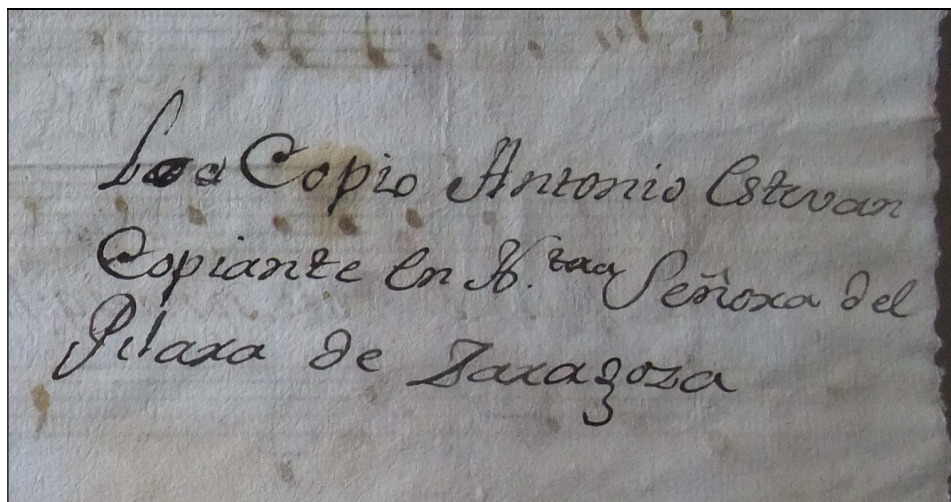 Los Copio Antonio Estevan
Copiante en N.tra Señora del
Pilara de Zaragoza